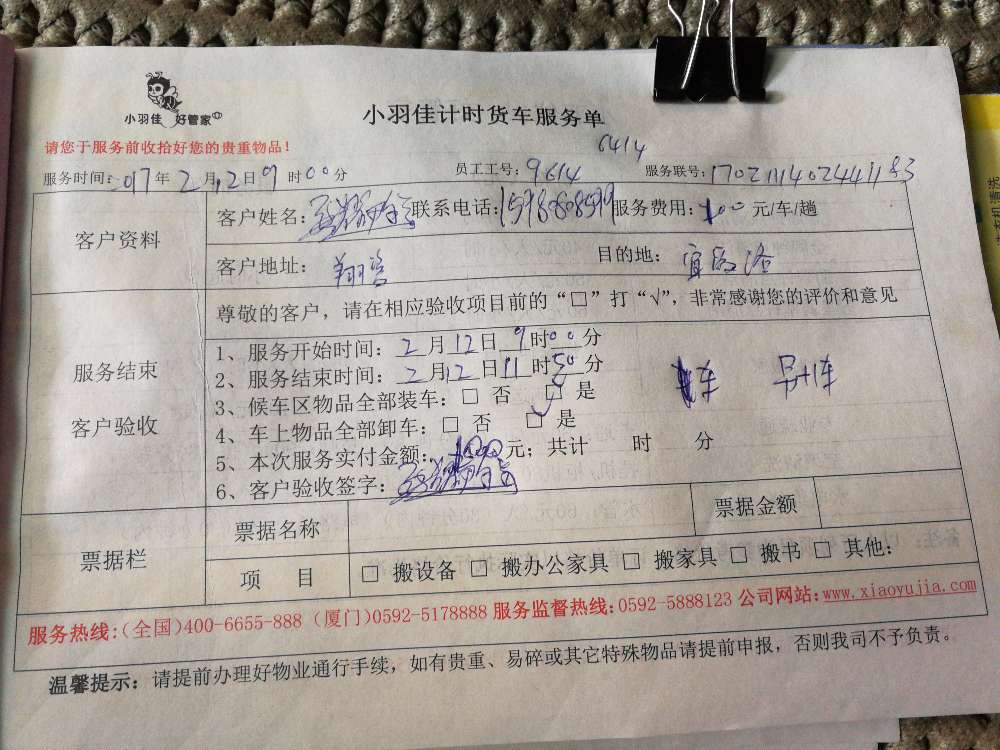 小羽佳 好管家
小羽佳计时货车服务单
请您于服务前收拾好您的贵重物品!
6414
服务时间: 2017年2月12日9时00分 员工工号: 9614 服务联号:
客户资料
客户姓名: 联系电话: 服务费用: 100元/车/趟
客户地址: 翔安 目的地:
尊敬的客户, 请在相应验收项目前的“□”打“√”, 非常感谢您的评价和意见
服务结束
客户验收
1、服务开始时间: 2月12日9时00分
2、服务结束时间: 2月12日11时50分
3、候车区物品全部装车: □ 否 □ 是
4、车上物品全部卸车: □ 否 □ 是
车
5、本次服务实付金额: 元; 共计 时 分
6、客户验收签字:
票据栏
票据名称 票据金额
项 目 □ 搬设备 □ 搬办公家具 □ 搬家具 □ 搬书 □ 其他:
服务热线:(全国)400-6655-888 (厦门)0592-5178888 服务监督热线:0592-5888123 公司网站:www.xiaoyujia.com
温馨提示: 请提前办理好物业通行手续, 如有贵重、易碎或其它特殊物品请提前申报, 否则我司不予负责。